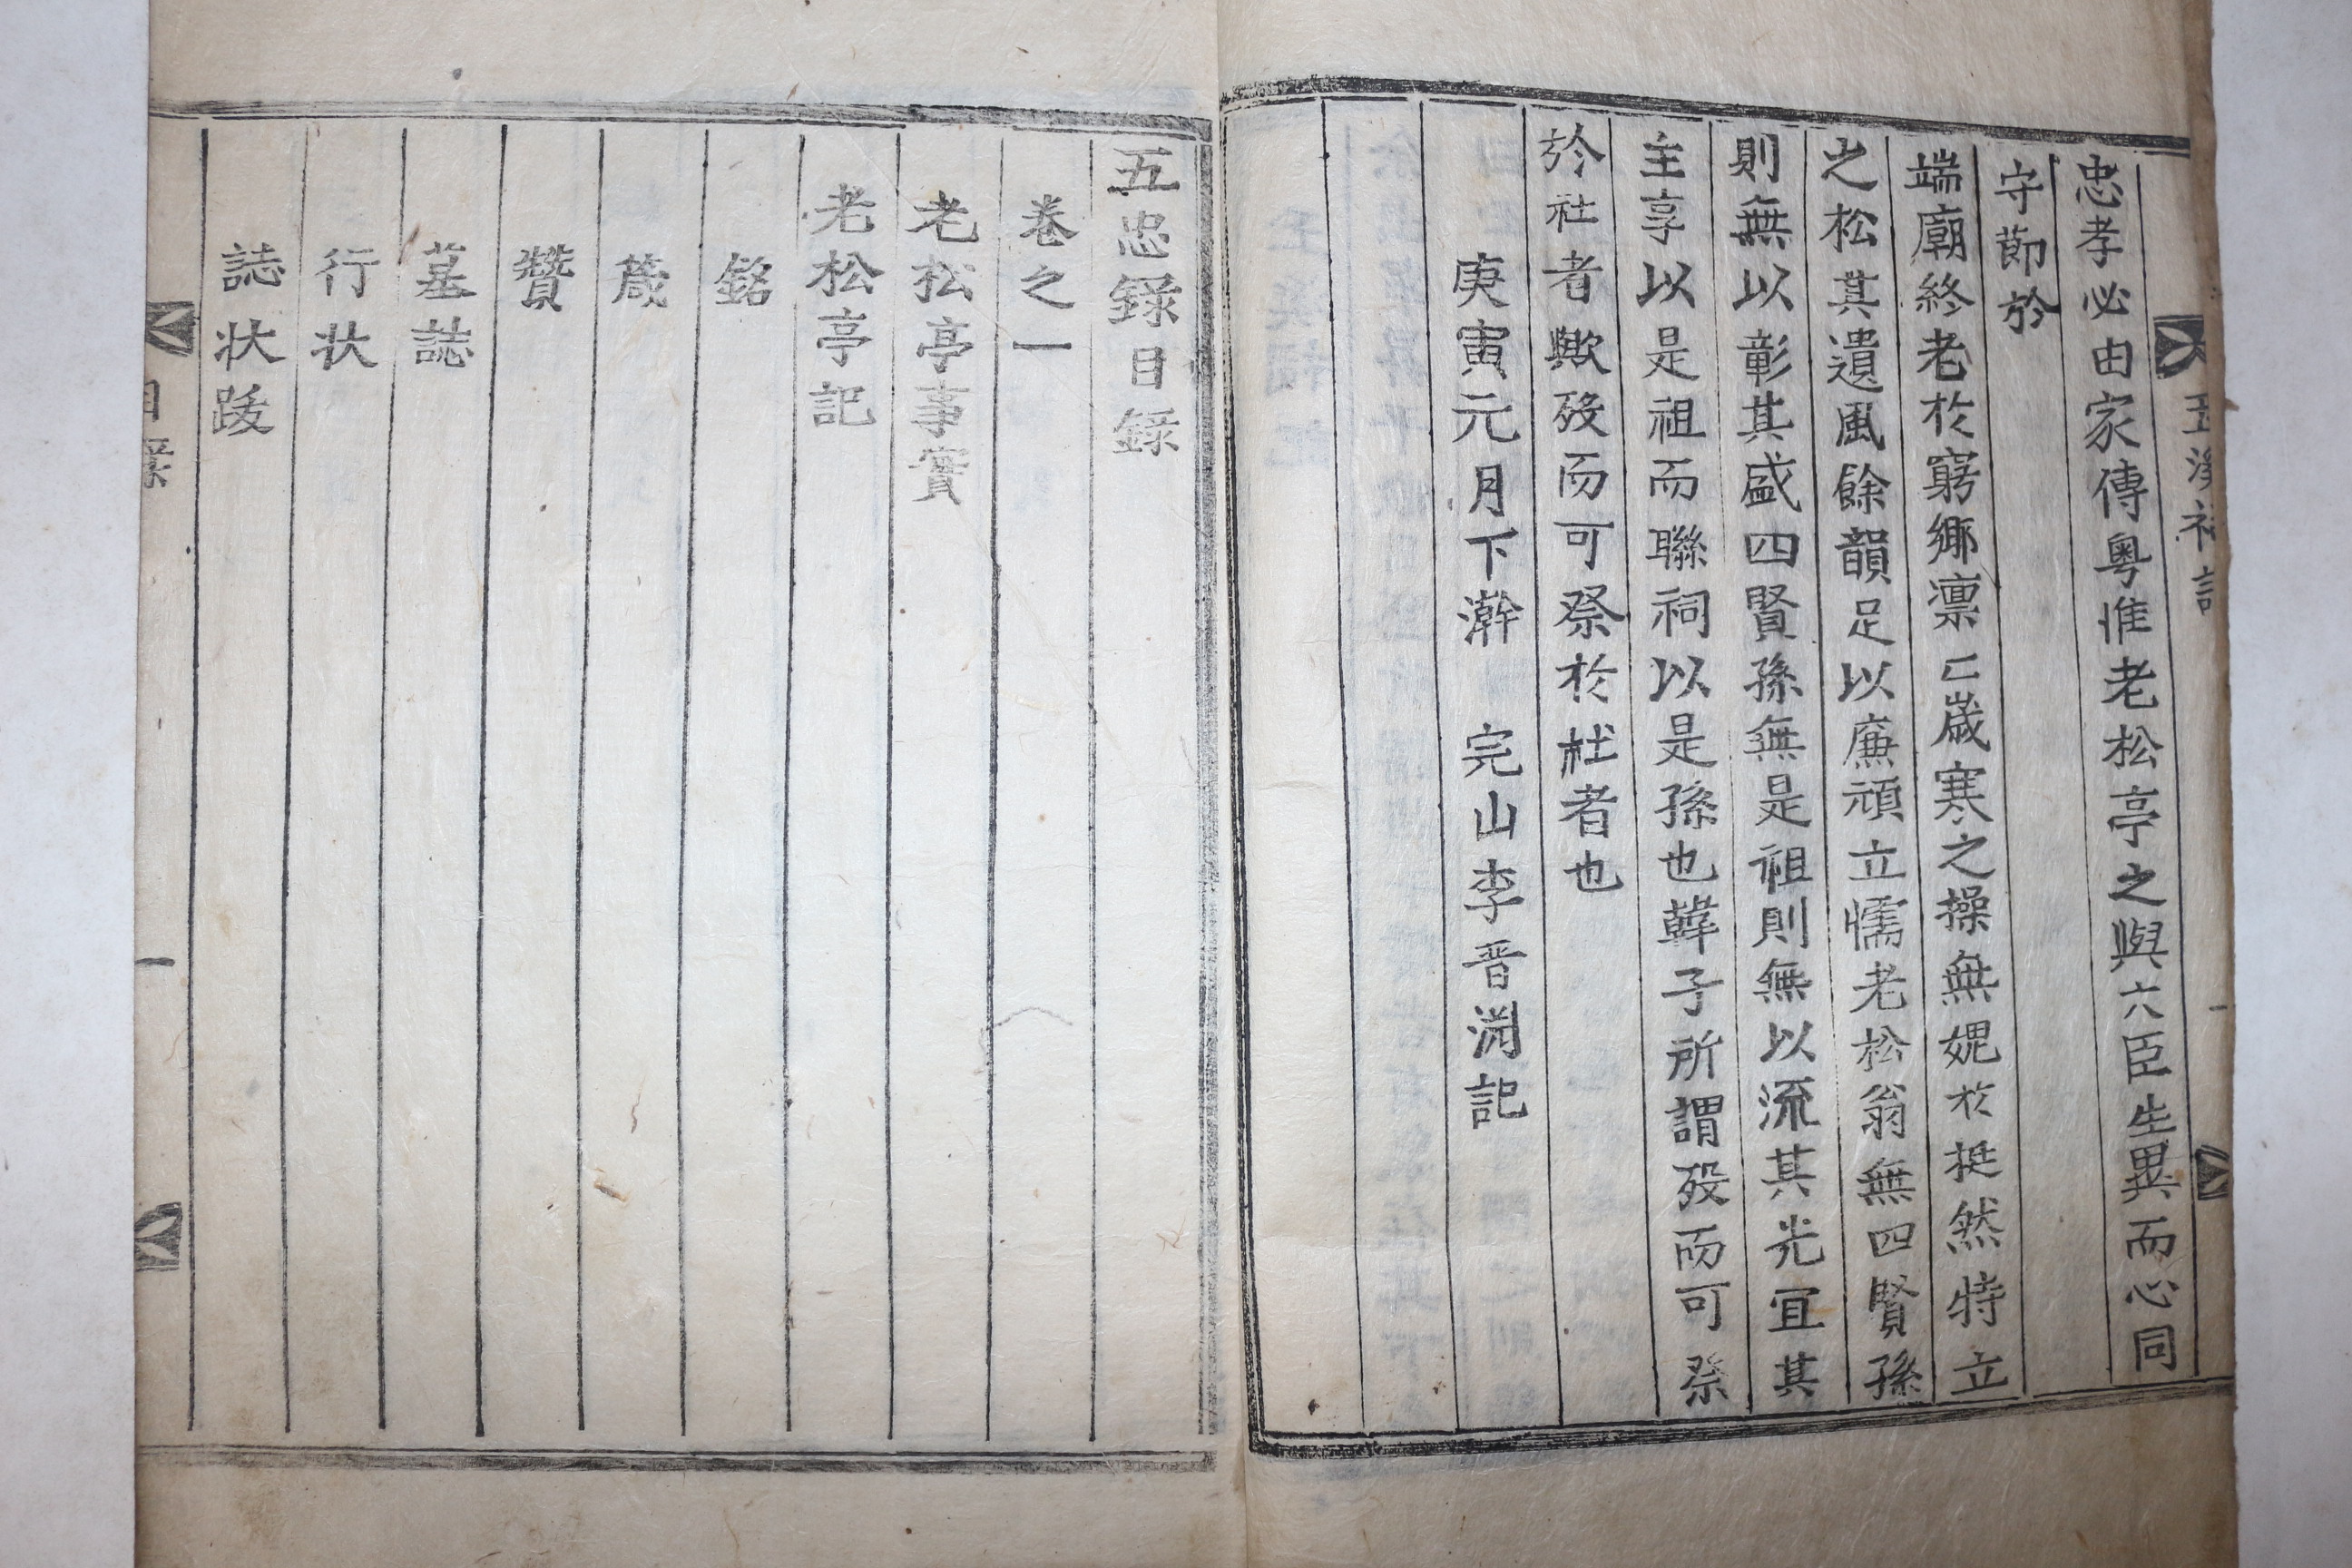 忠孝必由家傳粤惟老松亭之與六臣生異而心同
守節於
端廟終老於窮鄉凛〻歲寒之操無媿於挺然特立
之松其遺風餘韻足以廉頑立懦老松翁無四賢孫
則無以彰其盛四賢孫無是祖則無以流其光宜其
主享以是祖而聯祠以是孫也韓子所謂歿而可祭
於社者歟歿而可祭於社者也
庚寅元月下澣 完山李晋淵記
五忠錄目錄
卷之一
老松亭事實
老松亭記
銘
箴
贊
墓誌
行狀
誌狀跋
目錄
一